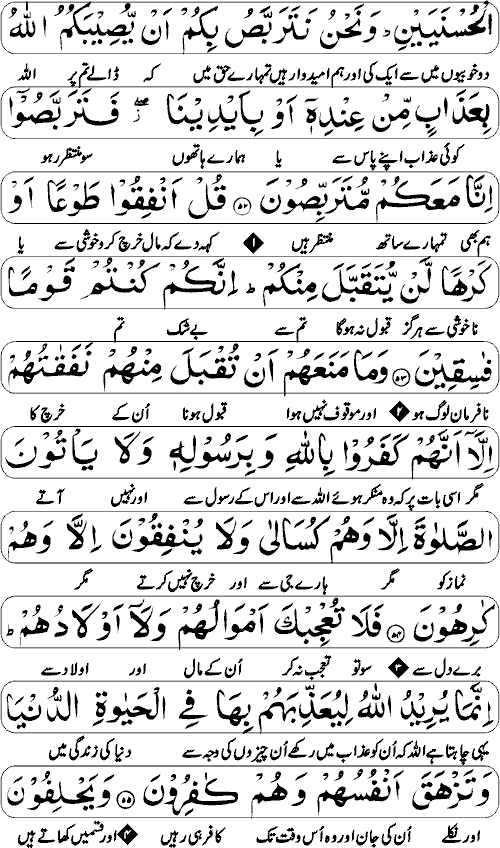 الْحُسْنَيَيْنِ ؕ وَنَحْنُ نَتَرَبَّصُ بِكُمْ اَنْ يُّصِيْبَكُمُ اللّٰهُ
دو خوبیوں میں سے ایک کی اور ہم امیدوار ہیں تمہارے حق میں کہ ڈالے تم پر اللہ
بِعَذَابٍ مِّنْ عِنْدِهٖۤ اَوْ بِاَيْدِيْنَا ۖ٘ فَتَرَبَّصُوْۤا
کوئی عذاب اپنے پاس سے یا ہمارے ہاتھوں سو منتظر رہو
اِنَّا مَعَكُمْ مُّتَرَبِّصُوْنَ ﴿۵۲﴾ قُلْ اَنْفِقُوْا طَوْعًا اَوْ
ہم بھی تمہارے ساتھ منتظر ہیں ۱ کہہ دے کہ مال خرچ کرو خوشی سے یا
كَرْهًا لَّنْ يُّتَقَبَّلَ مِنْكُمْ ؕ اِنَّكُمْ كُنْتُمْ قَوْمًا
ناخوشی سے ہرگز قبول نہ ہوگا تم سے بے شک تم
فٰسِقِيْنَ ﴿۵۳﴾ وَمَا مَنَعَهُمْ اَنْ تُقْبَلَ مِنْهُمْ نَفَقٰتُهُمْ
نافرمان لوگ ہو ۲ اور موقوف نہیں ہوا قبول ہونا اُن کے خرچ کا
اِلَّاۤ اَنَّهُمْ كَفَرُوْا بِاللّٰهِ وَبِرَسُوْلِهٖ وَلَا يَاْتُوْنَ
مگر اسی بات پر کہ وہ منکر ہوئے اللہ سے اور اس کے رسول سے اور نہیں آتے
الصَّلٰوةَ اِلَّا وَهُمْ كُسَالٰى وَلَا يُنْفِقُوْنَ اِلَّا وَهُمْ
نماز کو مگر ہارے جی سے اور خرچ نہیں کرتے مگر
كٰرِهُوْنَ ﴿۵۴﴾ فَلَا تُعْجِبْكَ اَمْوَالُهُمْ وَلَاۤ اَوْلَادُهُمْ ؕ
برے دل سے ۳ سو تو تعجب نہ کر اُن کے مال اور اولاد سے
اِنَّمَا يُرِيْدُ اللّٰهُ لِيُعَذِّبَهُمْ بِهَا فِى الْحَيٰوةِ الدُّنْيَا
یہی چاہتا ہے اللہ کہ اُن کو عذاب میں رکھے اُن چیزوں کی وجہ سے دنیا کی زندگی میں
وَتَزْهَقَ اَنْفُسُهُمْ وَهُمْ كٰفِرُوْنَ ﴿۵۵﴾ وَيَحْلِفُوْنَ
اور نکلے اُن کی جان اور وہ اُس وقت تک کافر ہی رہیں ۴ اور قسمیں کھاتے ہیں